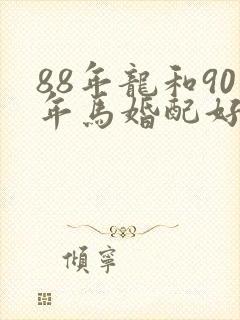 88年龍和90
年馬婚配好
傾寧